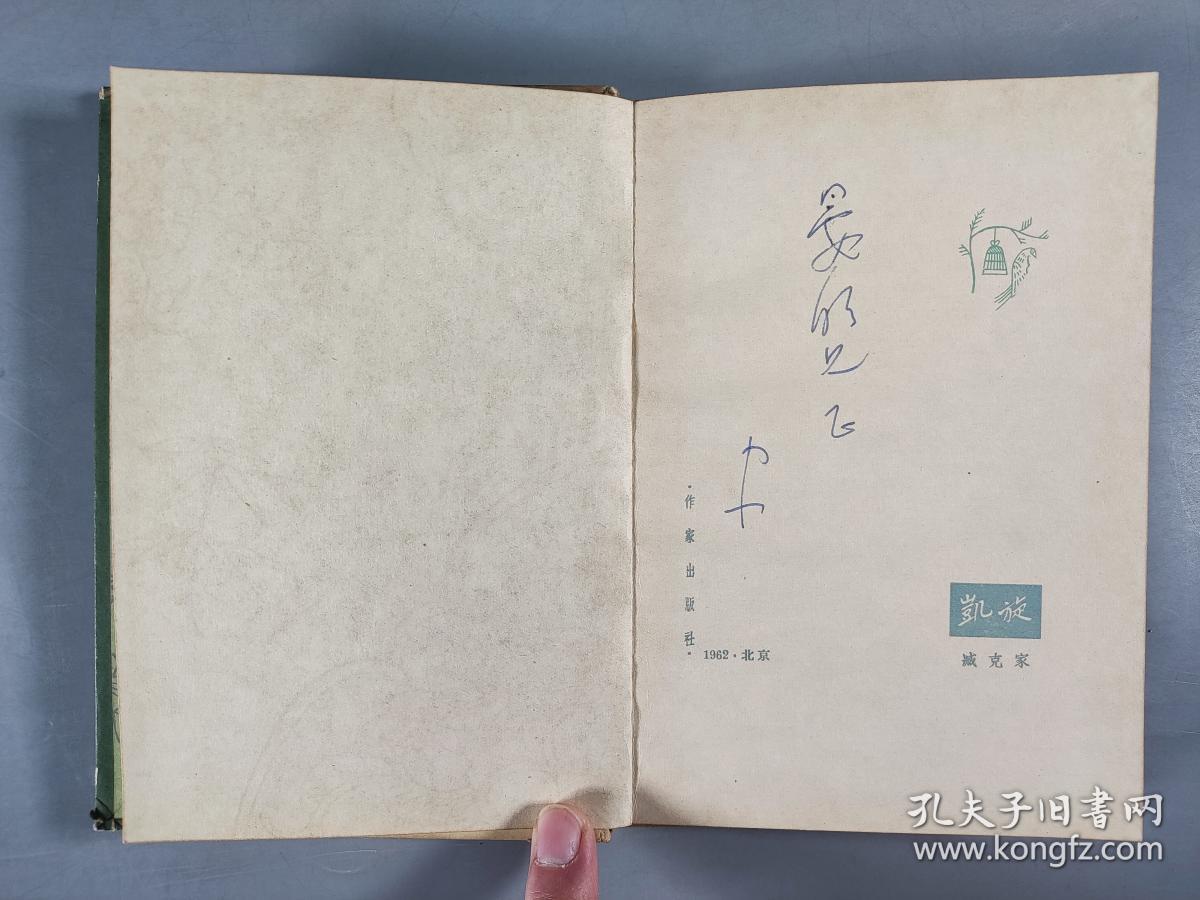 晏明兄 正
凱旋
臧克家
·作家出版社·
1962·北京
孔夫子旧書网
www.kongfz.com